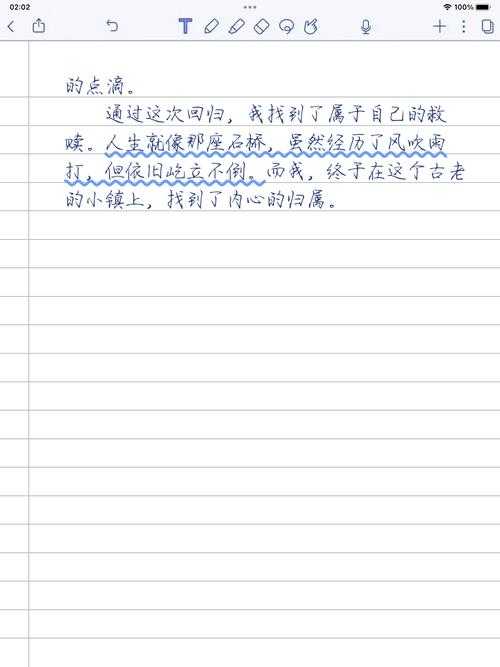 02:02
100%
的点滴。
通过这次回归，我找到了属于自己的救
赎。人生就像那座石桥，虽然经历了风吹雨
打，但依旧屹立不倒。而我，终于在这个古老
的小镇上，找到了内心的归属。